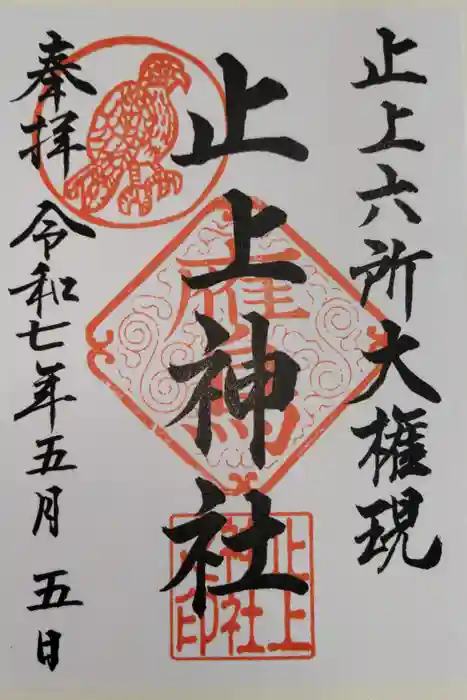 止上六所大権現
止上神社
奉拝
令和七年五月五日
鷹
止上
神社
之印